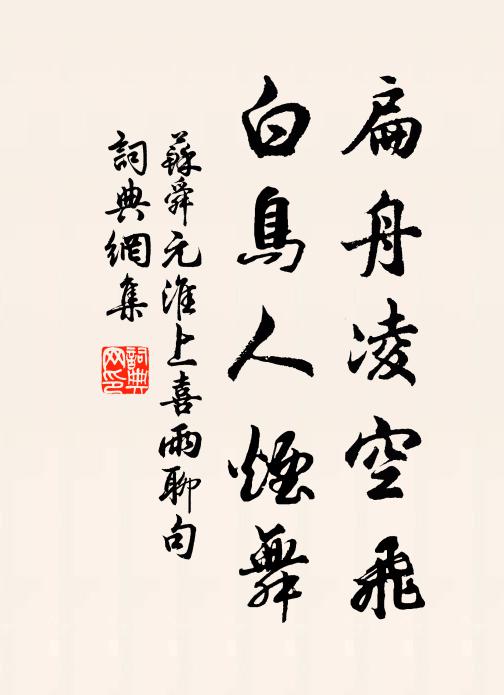 扁舟凌空飛
白鳥人煙舞
蘇舜元淮上喜雨聊句
詞典網集
詞典网印